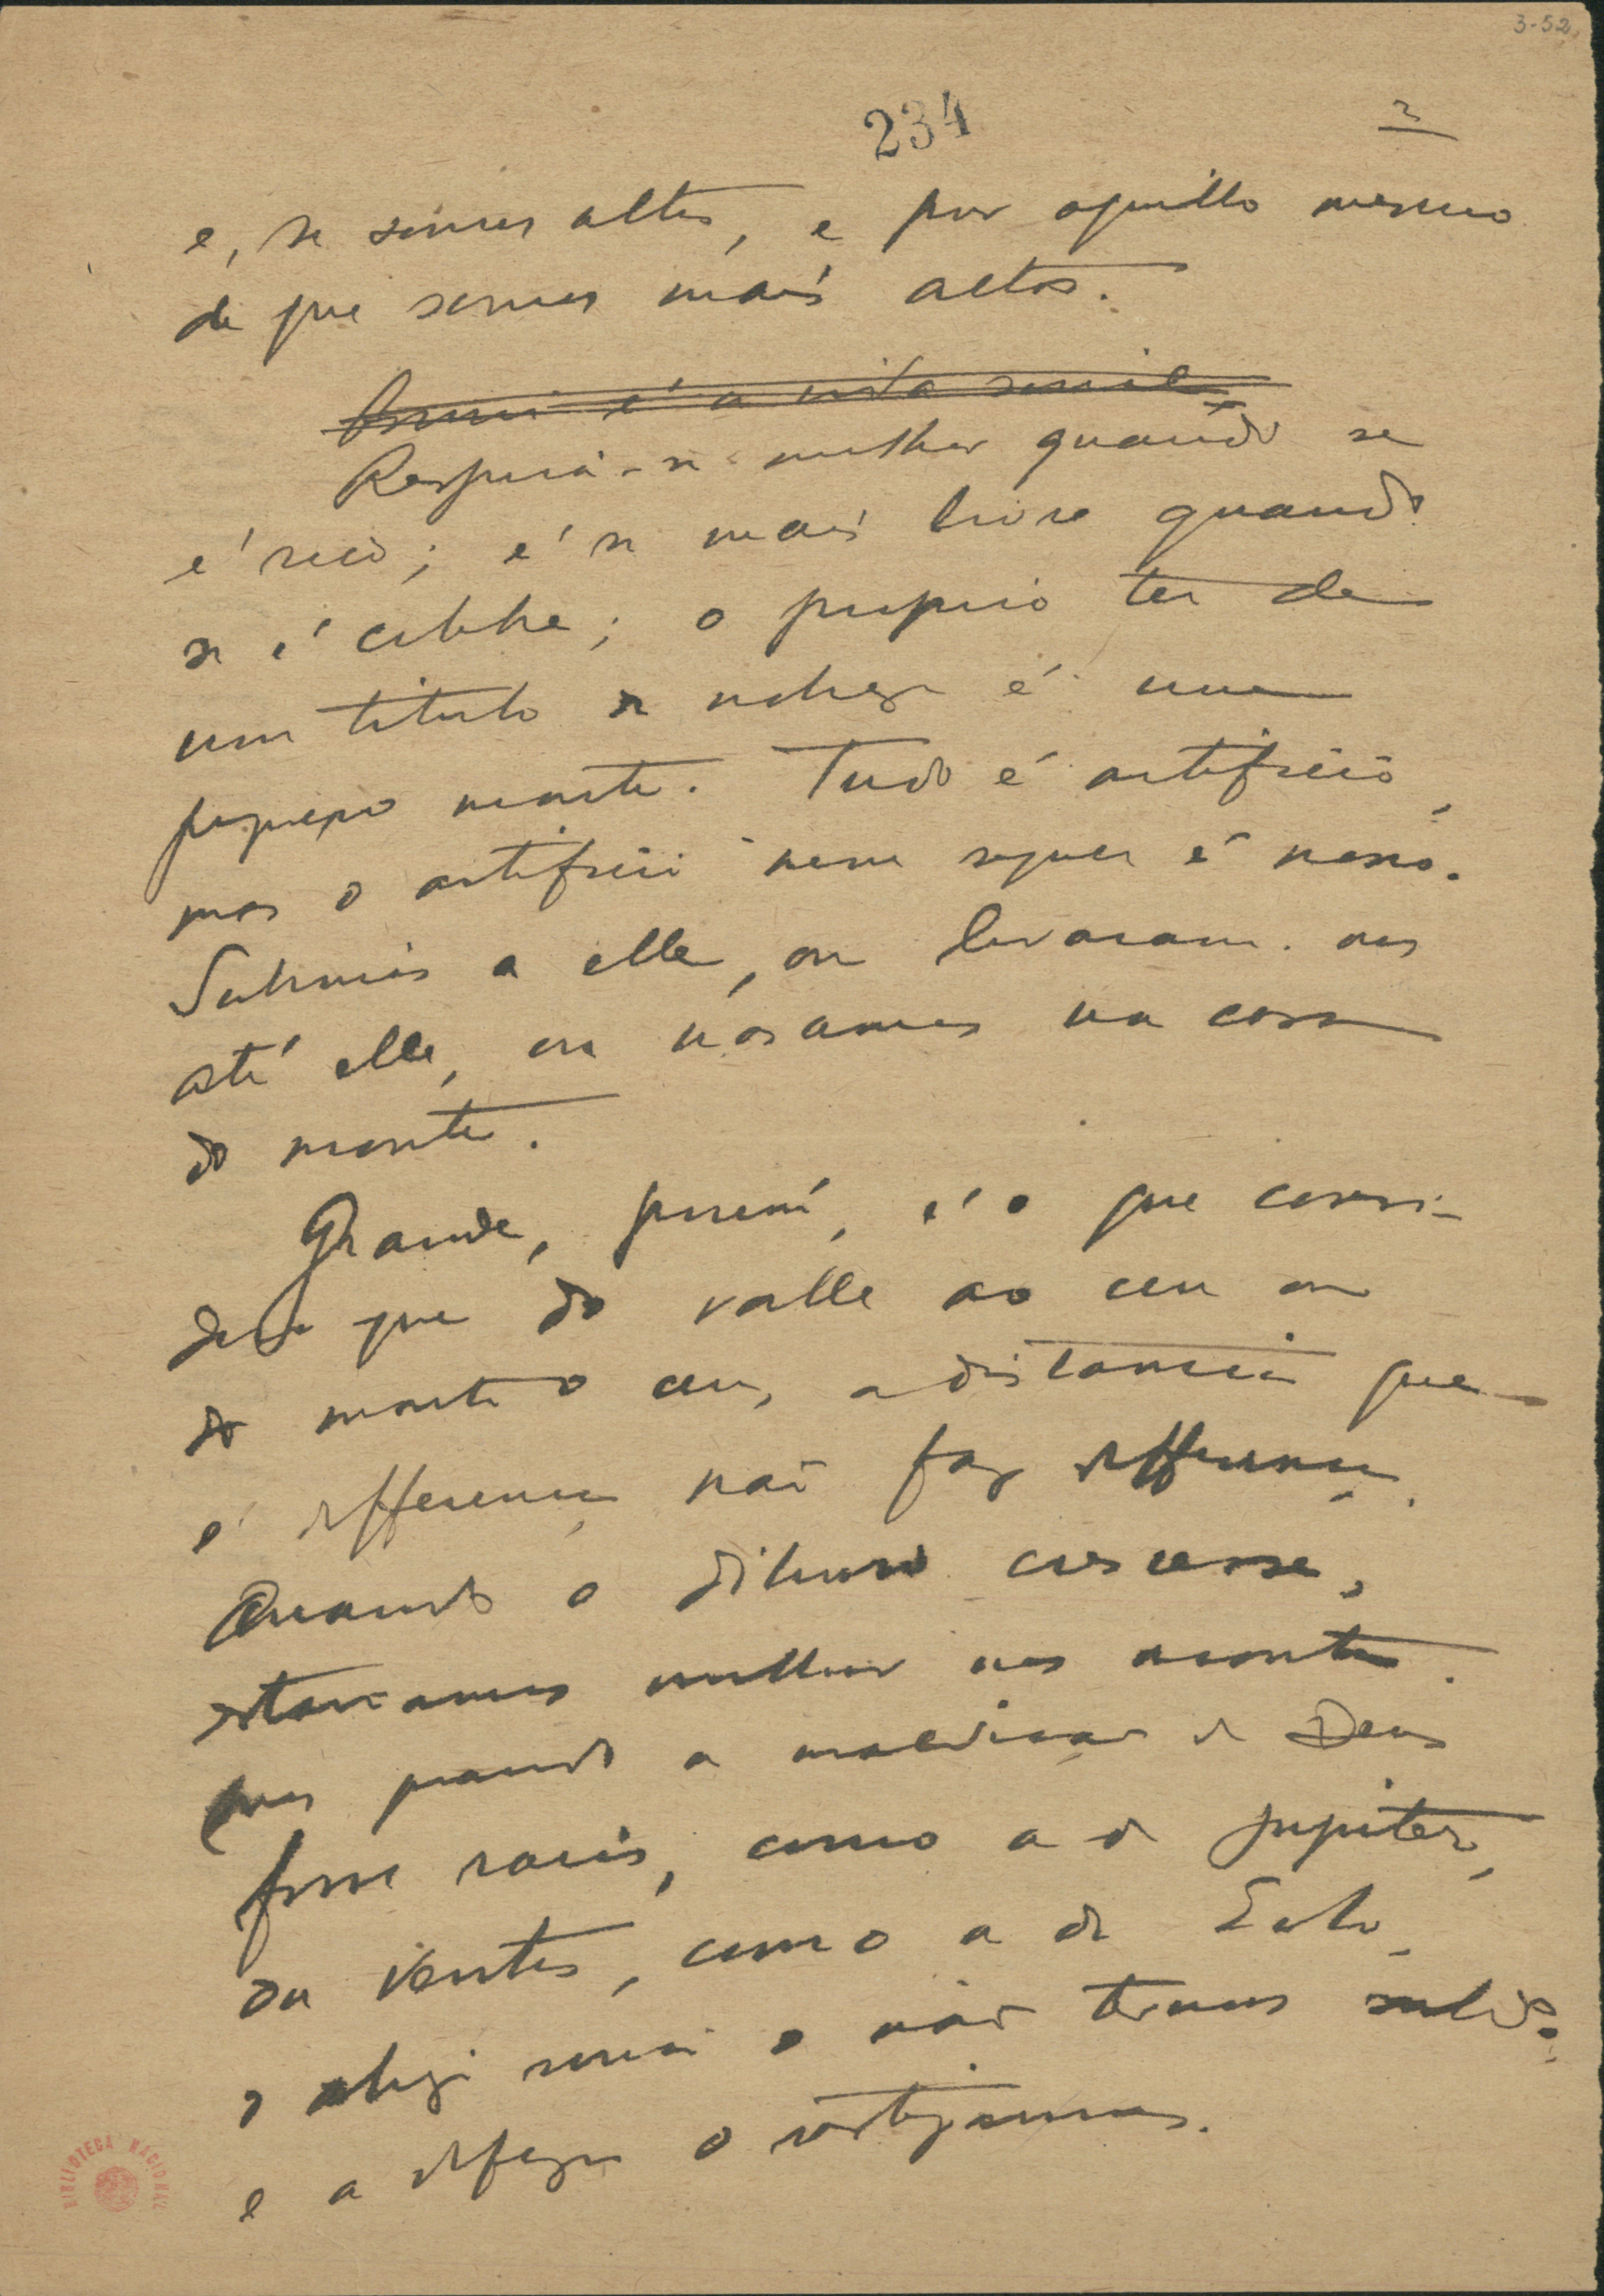 3-52
234
2
e, se somos altos, é por aquillo mesmo
de que somos mais altos.
Respira-se melhor quando se
é rico; é-se mais livre quando
se é celebre; o proprio ter de
um titulo de nobreza é um
pequeno monte. Tudo é artificio,
mas o artificio nem sequer é nosso.
Subimos a elle, ou levaram-nos
até elle, ou nascemos na casa
do monte.
Grande, porém, é o que consi-
dera que do valle ao ceu ou
do monte o ceu, a distancia que
é differença não faz differença.
Quando o diluvio crescesse,
estariamos melhor nos montes.
Mas quando a maldição de Deus
fosse raios, como a de Jupiter,
ou ventos, como a de Eolo,
o abrigo seria o não termos subido,
e a defeza o rastejarmos.
BIBLIOTECA NACIONAL